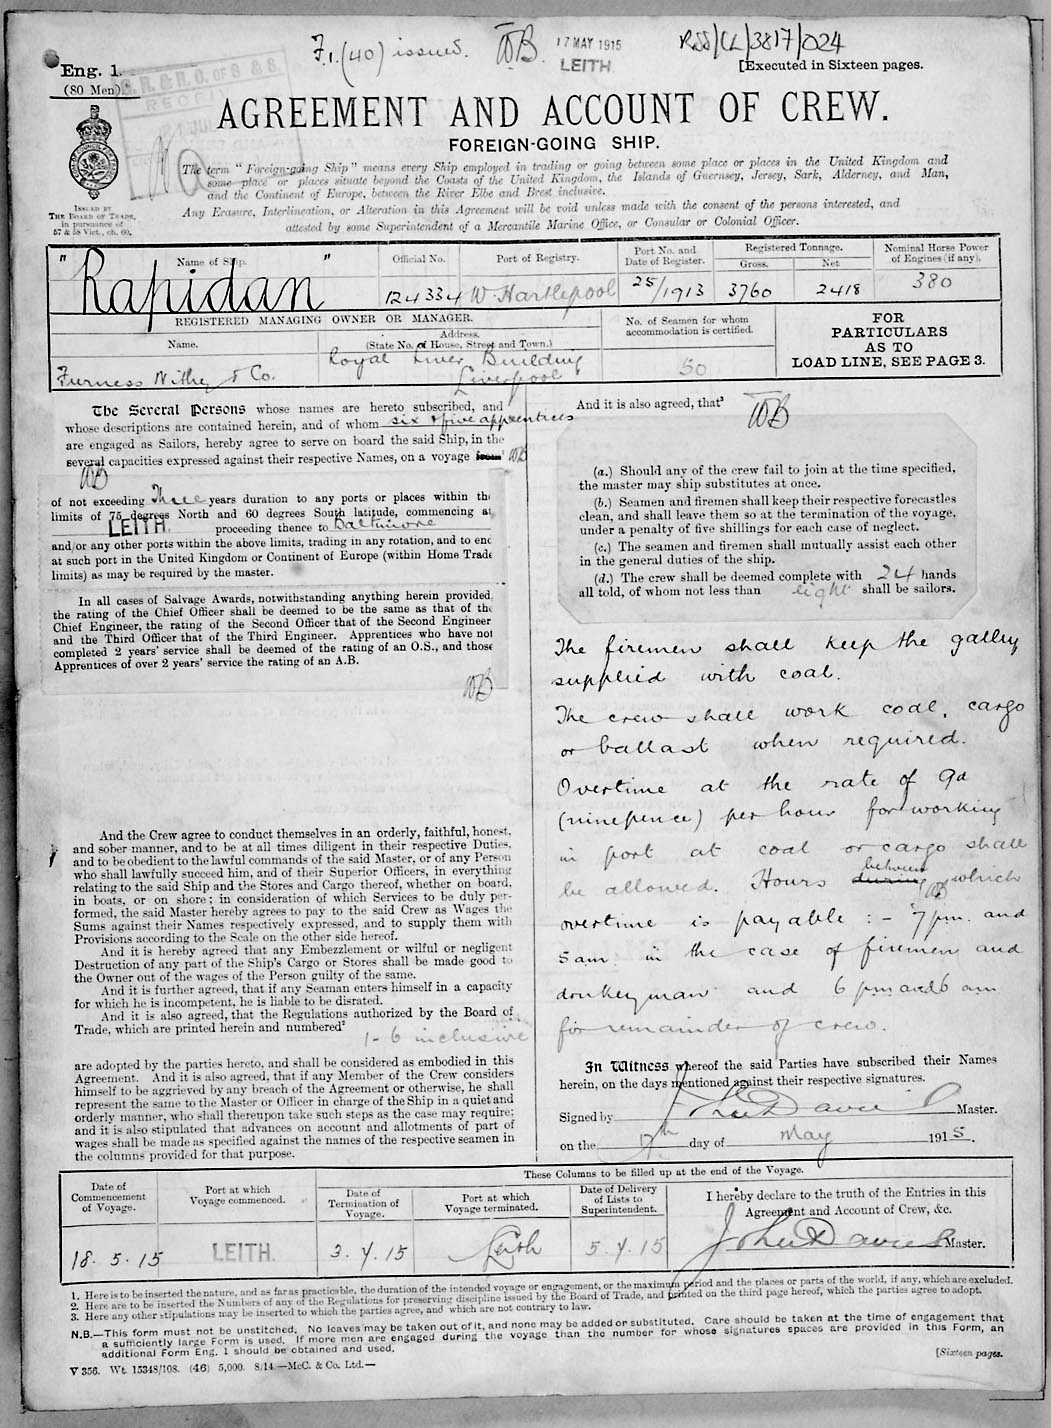 F.1.(40) issued. WB. 17 MAY 1915 LEITH RSS/CL/3817/024
Eng. 1.
(80 Men).
[Executed in Sixteen pages.
AGREEMENT AND ACCOUNT OF CREW.
FOREIGN-GOING SHIP.
The term "Foreign-going Ship" means every Ship employed in trading or going between some place or places in the United Kingdom and
some place or places situate beyond the Coasts of the United Kingdom, the Islands of Guernsey, Jersey, Sark, Alderney, and Man,
and the Continent of Europe, between the River Elbe and Brest inclusive.
Any Erasure, Interlineation, or Alteration in this Agreement will be void unless made with the consent of the persons interested, and
attested by some Superintendent of a Mercantile Marine Office, or Consular or Colonial Officer.
ISSUED BY
THE BOARD OF TRADE,
in pursuance of
57 & 58 Vict., ch. 60.
Name of Ship. Official No. Port of Registry. Port No. and Date of Register. Registered Tonnage. Gross. Net Nominal Horse Power of Engines (if any).
"Rapidan" 124334 W. Hartlepool 25/1913 3760 2418 380
REGISTERED MANAGING OWNER OR MANAGER.
Name. Address. (State No. of House, Street and Town.)
No. of Seamen for whom accommodation is certified.
FOR
PARTICULARS
AS TO
LOAD LINE, SEE PAGE 3.
Furness Withy & Co. Royal Liver Building Liverpool 50
The Several Persons whose names are hereto subscribed, and
whose descriptions are contained herein, and of whom six & five apprentices
are engaged as Sailors, hereby agree to serve on board the said Ship, in the
several capacities expressed against their respective Names, on a voyage from WB
WB
of not exceeding Three years duration to any ports or places within the
limits of 75 degrees North and 60 degrees South latitude, commencing at
LEITH. proceeding thence to Baltimore
and/or any other ports within the above limits, trading in any rotation, and to end
at such port in the United Kingdom or Continent of Europe (within Home Trade
limits) as may be required by the master.
In all cases of Salvage Awards, notwithstanding anything herein provided,
the rating of the Chief Officer shall be deemed to be the same as that of the
Chief Engineer, the rating of the Second Officer that of the Second Engineer
and the Third Officer that of the Third Engineer. Apprentices who have not
completed 2 years' service shall be deemed of the rating of an O.S., and those
Apprentices of over 2 years' service the rating of an A.B.
WB
And the Crew agree to conduct themselves in an orderly, faithful, honest,
and sober manner, and to be at all times diligent in their respective Duties,
and to be obedient to the lawful commands of the said Master, or of any Person
who shall lawfully succeed him, and of their Superior Officers, in everything
relating to the said Ship and the Stores and Cargo thereof, whether on board,
in boats, or on shore; in consideration of which Services to be duly per-
formed, the said Master hereby agrees to pay to the said Crew as Wages the
Sums against their Names respectively expressed, and to supply them with
Provisions according to the Scale on the other side hereof.
And it is hereby agreed that any Embezzlement or wilful or negligent
Destruction of any part of the Ship's Cargo or Stores shall be made good to
the Owner out of the wages of the Person guilty of the same.
And it is further agreed, that if any Seaman enters himself in a capacity
for which he is incompetent, he is liable to be disrated.
And it is also agreed, that the Regulations authorized by the Board of
Trade, which are printed herein and numbered²
1-6 inclusive
are adopted by the parties hereto, and shall be considered as embodied in this
Agreement. And it is also agreed, that if any Member of the Crew considers
himself to be aggrieved by any breach of the Agreement or otherwise, he shall
represent the same to the Master or Officer in charge of the Ship in a quiet and
orderly manner, who shall thereupon take such steps as the case may require;
and it is also stipulated that advances on account and allotments of part of
wages shall be made as specified against the names of the respective seamen in
the columns provided for that purpose.
And it is also agreed, that³ WB
(a.) Should any of the crew fail to join at the time specified,
the master may ship substitutes at once.
(b.) Seamen and firemen shall keep their respective forecastles
clean, and shall leave them so at the termination of the voyage,
under a penalty of five shillings for each case of neglect.
(c.) The seamen and firemen shall mutually assist each other
in the general duties of the ship.
(d.) The crew shall be deemed complete with 24 hands
all told, of whom not less than eight shall be sailors.
The firemen shall keep the galley
supplied with coal.
The crew shall work coal, cargo
or ballast when required.
Overtime at the rate of 9d
(ninepence) per hour for working
in port at coal or cargo shall
be allowed. Hours during between WB which
overtime is payable :- 7 pm. and
5 am in the case of firemen and
donkeyman and 6 pm and 6 am
for remainder of crew.
In Witness whereof the said Parties have subscribed their Names
herein, on the days mentioned against their respective signatures.
Signed by John Davies Master.
on the 17th day of May 1915.
These Columns to be filled up at the end of the Voyage.
Date of Commencement of Voyage. Port at which Voyage commenced. Date of Termination of Voyage. Port at which Voyage terminated. Date of Delivery of Lists to Superintendent. I hereby declare to the truth of the Entries in this Agreement and Account of Crew, &c.
18.5.15 LEITH. 3.7.15 Leith 5.7.15 John Davies Master.
1. Here is to be inserted the nature, and as far as practicable, the duration of the intended voyage or engagement, or the maximum period and the places or parts of the world, if any, which are excluded.
2. Here are to be inserted the Numbers of any of the Regulations for preserving discipline issued by the Board of Trade, and printed on the third page hereof, which the parties agree to adopt.
3. Here any other stipulations may be inserted to which the parties agree, and which are not contrary to law.
N.B.—This form must not be unstitched. No leaves may be taken out of it, and none may be added or substituted. Care should be taken at the time of engagement that
a sufficiently large Form is used. If more men are engaged during the voyage than the number for whose signatures spaces are provided in this Form, an
additional Form Eng. 1 should be obtained and used.
[Sixteen pages.
V 356. Wt. 15348/108. (46) 5,000. 8/14.—McC. & Co. Ltd.—